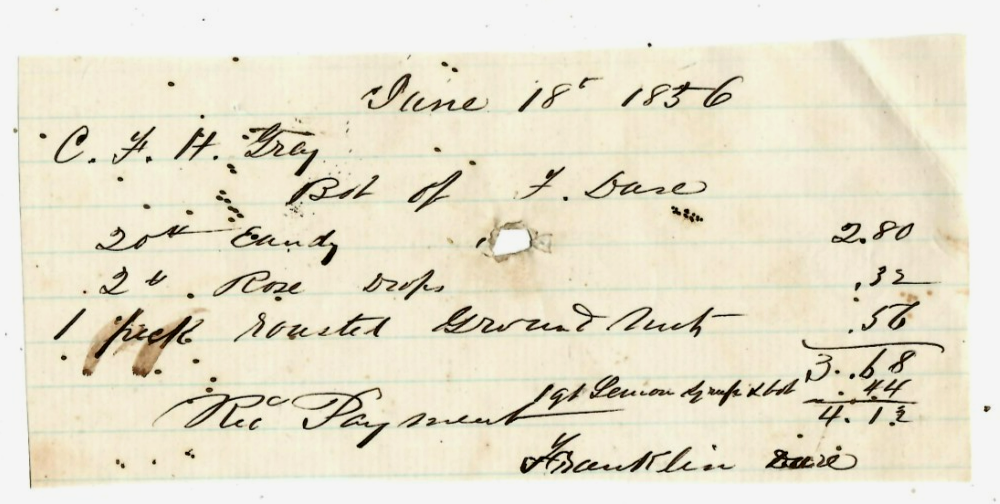 June 18th 1856
C. F. H. Gray
Bot of F. Dare
20 lb Candy 2.80
2 lb Rose Drops .32
1 peck roasted Ground Nuts .56
3.68
1 qt Lemon Syrup & bot .44
4.12
Rec Payment
Franklin Dare